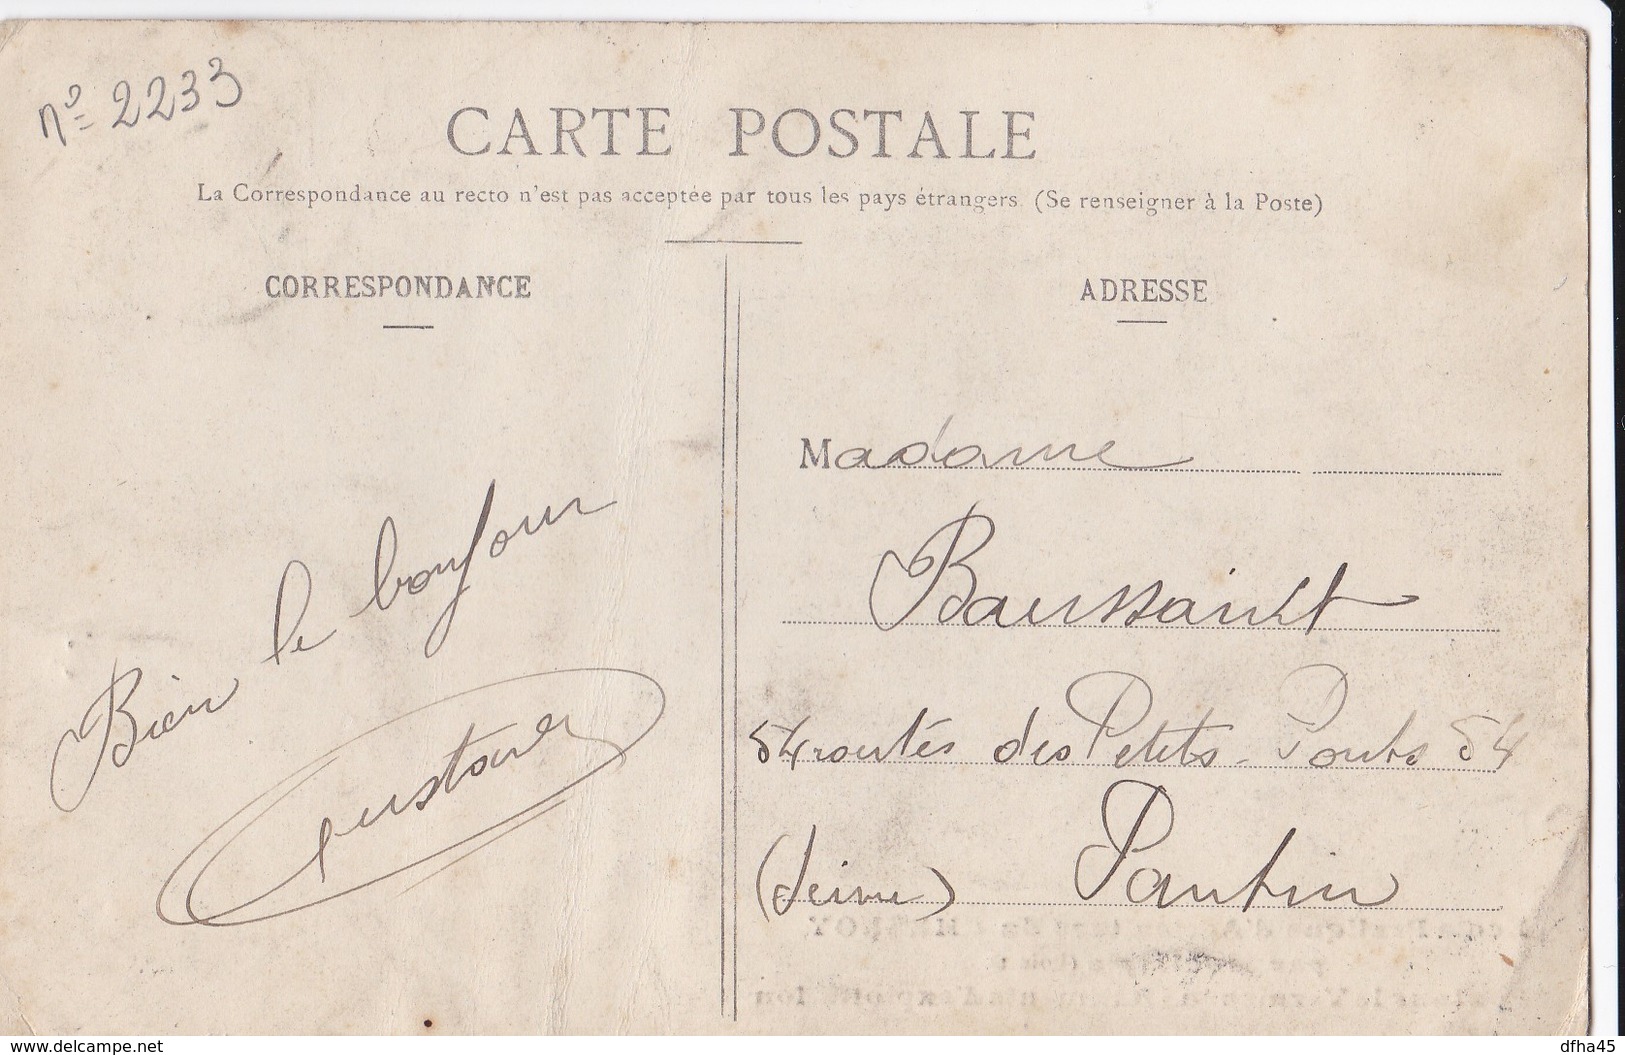 nº 2233
CARTE POSTALE
La Correspondance au recto n'est pas acceptée par tous les pays étrangers (Se renseigner à la Poste)
CORRESPONDANCE
ADRESSE
Madame
Baussault
54 routes des Petits-Ponts 54
(Seine) Pantin
Bien le bonjour
Gustave
www.delcampe.net
dfha45